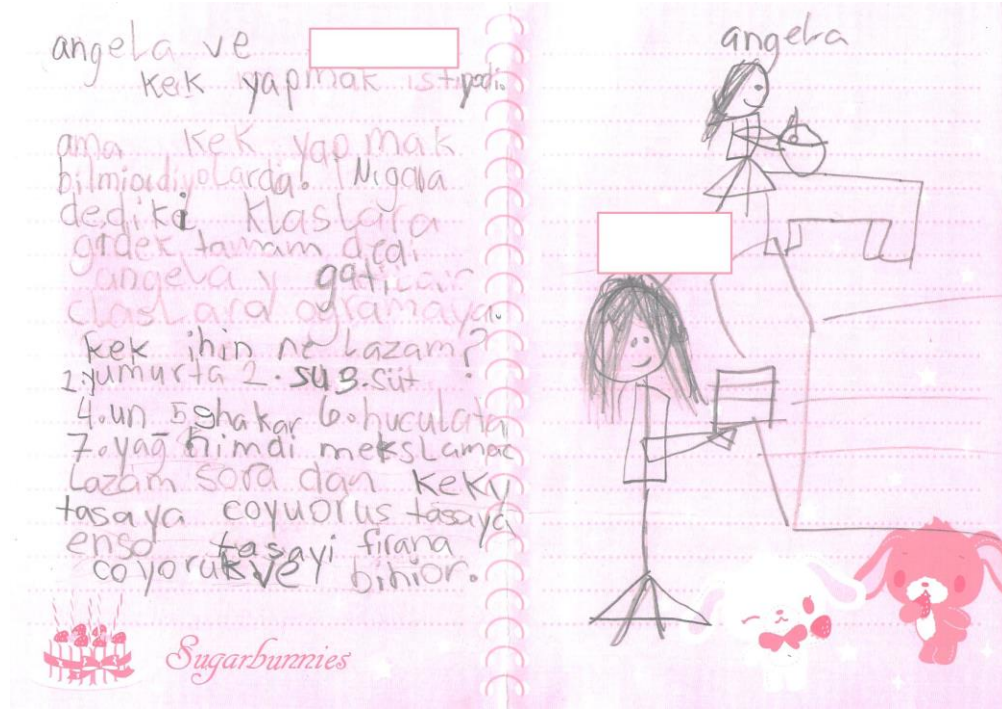 angela ve
kek yapmak istiyodi.
ama kek yapmak
bilmiordiyolarda!
dediki klaslara
gidek tamam dedi
angela y gatilair
claslara ogramaya.
kek ihin ne lazam?
1.yumurta 2. su 3.süt
4.un 5ghakar 6.huculata
7.yağ himdi mekslamac
lazam sora dan keky
tasaya coyuorus tasaya
enso tasayi firana
coyorukve bihior.
Sugarbunnies
angela